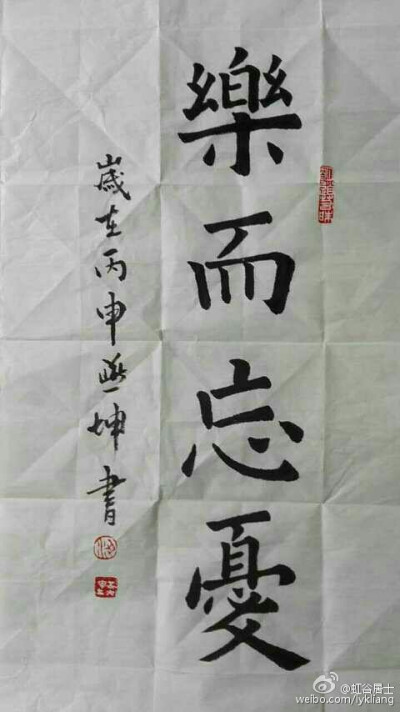 樂而忘憂
歲在丙申逸坤書
@虹谷居士
weibo.com/iykliang